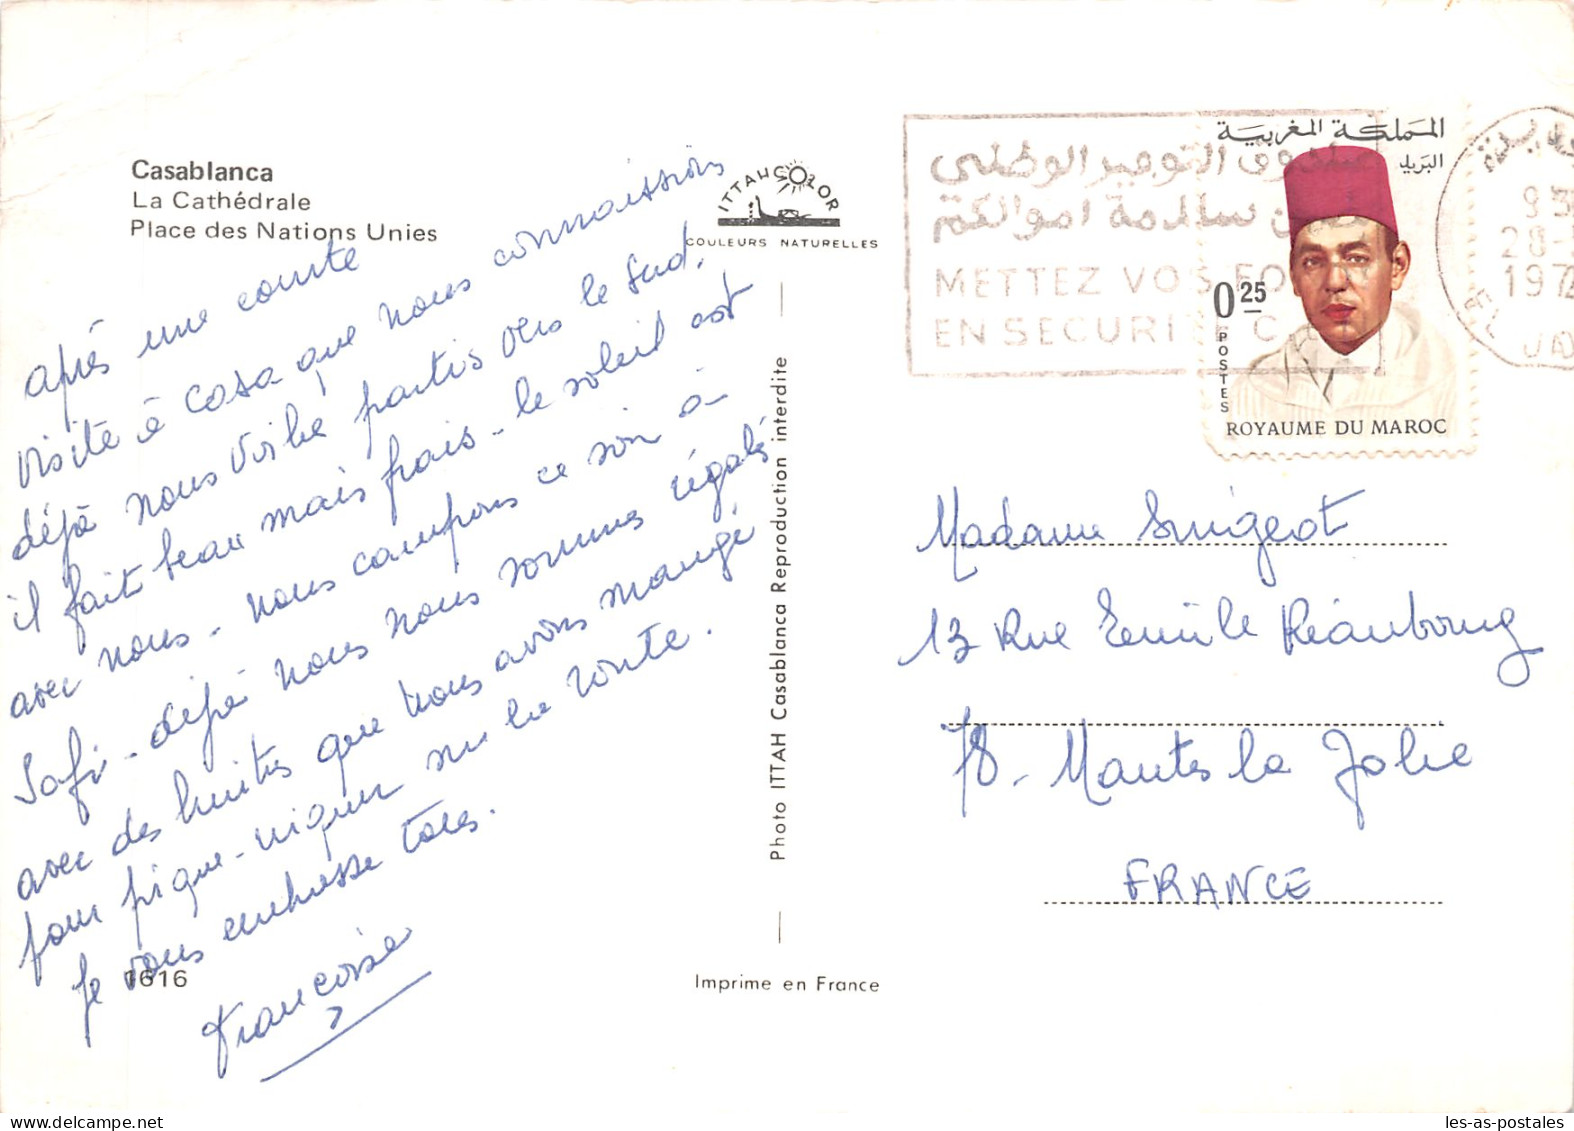 Casablanca
La Cathédrale
Place des Nations Unies
ITTAHCOLOR
COULEURS NATURELLES
après une courte
visite à Casa que nous connaissions
déjà nous voilà partis vers le Sud.
il fait beau mais frais - le soleil est
avec nous - nous campons ce soir à
Safi - déjà nous nous sommes régalés
avec des huitres que nous avons mangé
pour pique-niquer sur la route.
Je vous embrasse tous.
Françoise
1616
Photo ITTAH Casablanca Reproduction interdite
Imprime en France
صندوق التوفير الوطني
سلامة اموالكم
METTEZ VOS FO
EN SECURITE C
المملكة المغربية
البريد
0.25
POSTES
ROYAUME DU MAROC
1972
Madame
13 Rue Emile
78 - Mantes la Jolie
FRANCE
les-as-postales